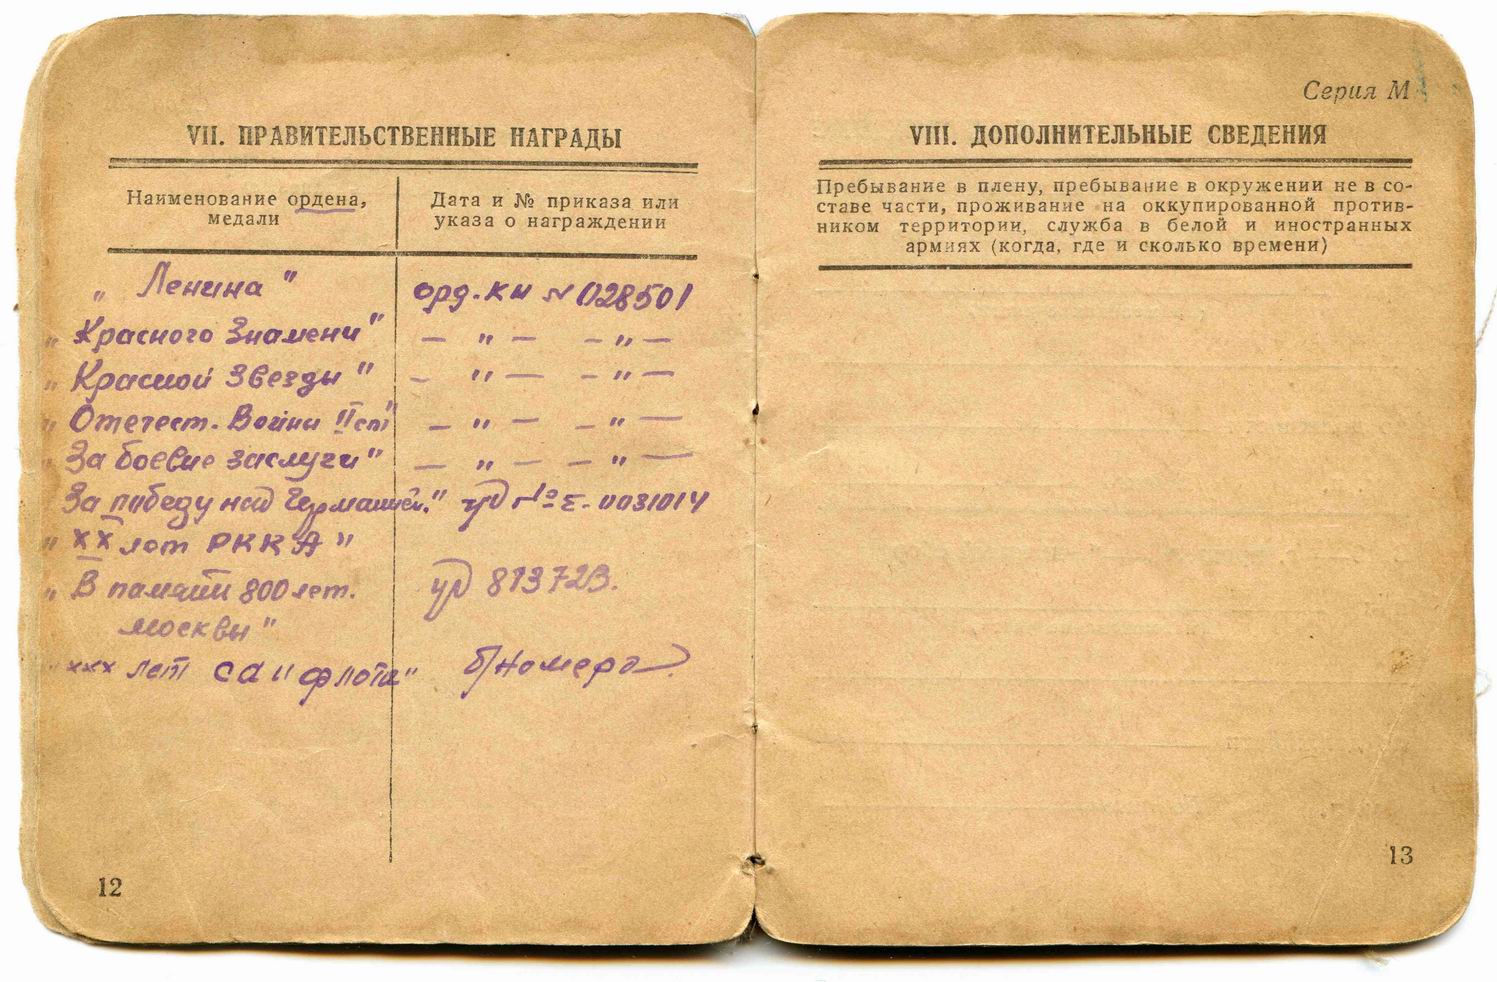 VII. ПРАВИТЕЛЬСТВЕННЫЕ НАГРАДЫ
Наименование ордена,
медали
Дата и № приказа или
указа о награждении
„ Ленина " орд. кн № 028501
„ Красного Знамени" — " — — " —
„ Красной Звезды " — " — — " —
„ Отечест. Войны II ст" — " — — " —
„ За боевые заслуги" — " — — " —
За победу над Германией." уд № Е- 0031014
„ XX лет РККА "
„ В память 800 лет. уд 813723.
Москвы "
" ххх лет СА и флота" б/номера
12
Серия М
VIII. ДОПОЛНИТЕЛЬНЫЕ СВЕДЕНИЯ
Пребывание в плену, пребывание в окружении не в со-
ставе части, проживание на оккупированной против-
ником территории, служба в белой и иностранных
армиях (когда, где и сколько времени)
13